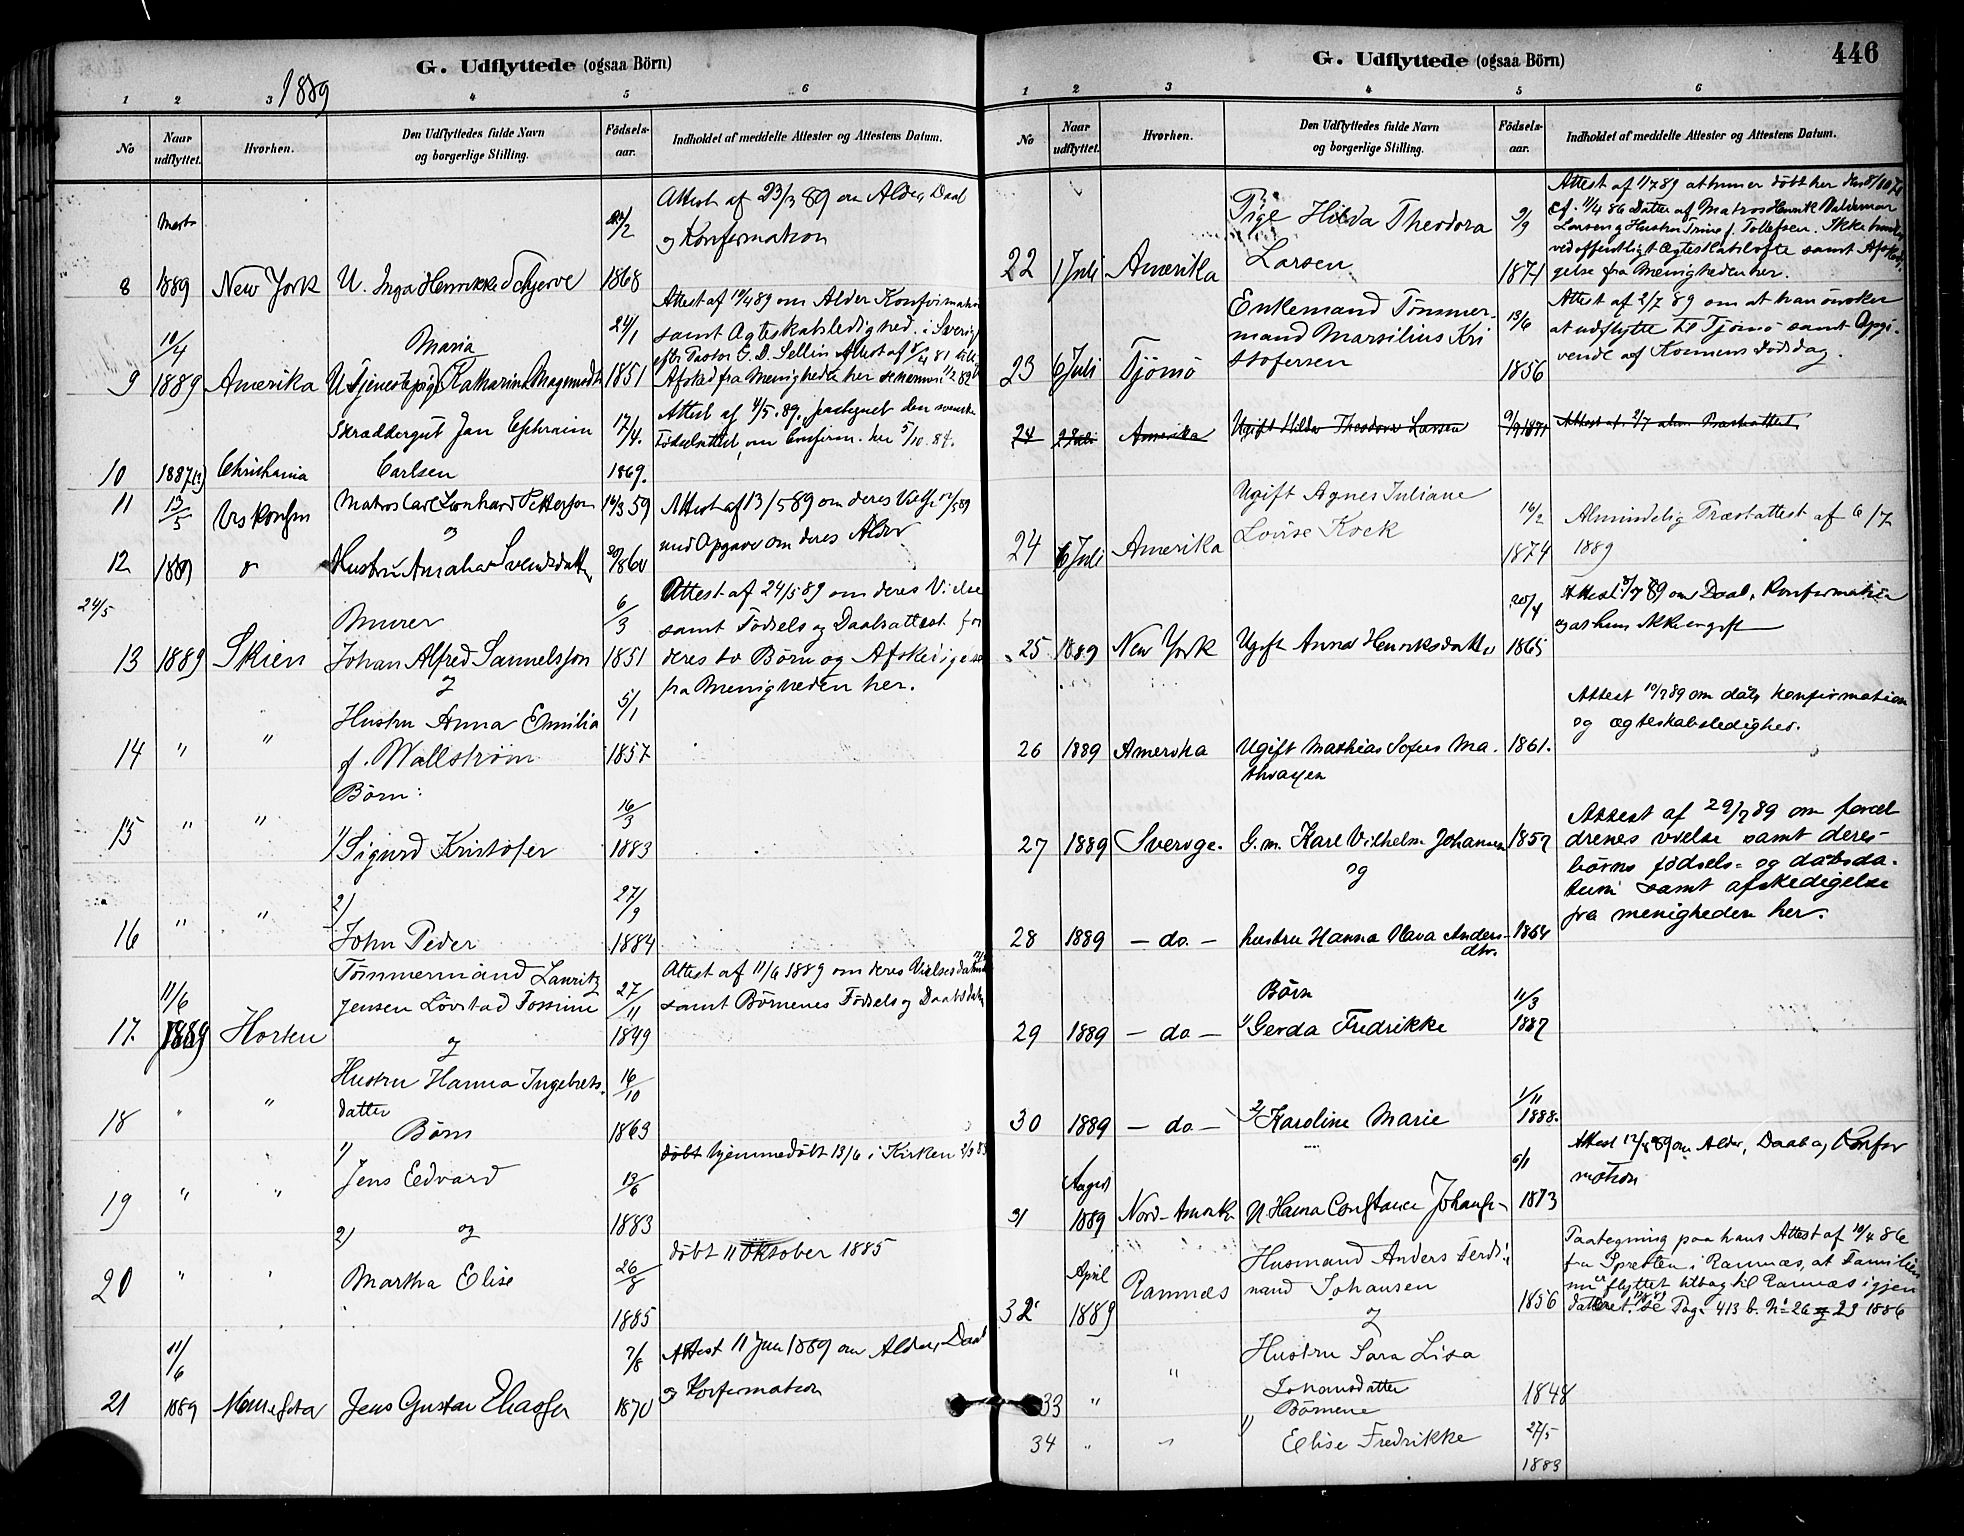 G. Udflyttede (ogsaa Börn)
1889
1 2 3 4 5 6
No
Naar udflyttet.
Hvorhen.
Den Udflyttedes fulde Navn
og borgerlige Stilling.
Födsels-
aar.
Indholdet af meddelte Attester og Attestens Datum.
Attest af 23/3 89 om Alder, Daab
og Konfirmation
8 1889 New York U. Inga Henrikke 1868
10/4
24/1
Attest af 10/4 89 om Alder Konfirmation
samt Ægteskabsledighed.
Maria
9 1889 Amerika U. Tjenestepige Katharina 1851
Afsked fra Menigheden her
Skræddergut Jan Ephraim
17/4.
Attest af 4/5. 89, paategnet den svenske
Födselsattest, om Confirm. her 5/10. 84.
10 1887(?) Christiania Carlsen 1869.
11 13/5 Matros Carl Leonhard Pettersen 14/3 59 Attest af 13/5 89 om deres Vielse 12/5 89
og
med Opgave om deres Alder
12 1889 Hustru
24/5
Murer
6/3
Attest af 24/5 89 om deres Vielse
samt Födsels og Daabsattest for
13 1889 Skien Johan Alfred Samuelsson 1851 deres to Börn og Afskedigelse
og
fra Menigheden her.
Hustru Anna Emilia
5/1
14 " " f. Wallström 1857
Börn:
16/3
15 " " 1) Sigurd Kristofer 1883
2)
27/9
16 " " John Peder 1884
Tömmermand Lauritz
Attest af 11/6 1889 om deres Vielsesdatum
11/6
Jensen Lövstad
27/11
samt Börnenes Födsels og Daabsdatum
17. 1889 Horten og 1849
Hustru Hanna Ingebrets-
16/10
18 " " datter 1863
Börn
1)
döbt hjemmedöbt 13/6 i Kirken 2/9 83
Jens Edvard
13/6
19 " " 1883
2) og
döbt 11 Oktober 1885
20 " " Martha Elise
26/8
1885
11/6
7/8
Attest 11 Juni 1889 om Alder, Daab
og Konfirmation
21 1889 Jens Gustav 1870
G. Udflyttede (ogsaa Börn)
446
1 2 3 4 5 6
No
Naar udflyttet.
Hvorhen.
Den Udflyttedes fulde Navn
og borgerlige Stilling.
Födsels-
aar.
Indholdet af meddelte Attester og Attestens Datum.
Pige Hilda Theodora
9/9
Attest af 1/7 89 at hun er döbt her
cf. 11/4 86 Datter af Matros Henrik Valdemar
Larsen og Hustru Trine f. Tollefsen. Ikke bunden
ved offentligt Ægteskabslöfte samt Afskedi-
gelse fra Menigheden her.
22 1 Juli Amerika Larsen 1871
Enkemand Tömmer-
mand Marsilius Kri
stofersen
13/6
Attest af 2/7 89 om at han önsker
at udflytte til Tjömö samt Opgi-
vende af Konnens Dödsdag.
23 6 Juli Tjömö 1856
24 2 Juli Amerika Ugift Hilda Theodora Larsen 9/9 1871 Attest af 2/7 alm. Præsteattest
Ugift Agnes Juliane
Lovise Kock
16/2
Almindelig Præstattest af 6/7
1889
24 6 Juli Amerika 1874
20/4
Attest 8/7 89 om Daab, Konfirmation
og at hun ikke er gift
25 1889 New York Ugift Anna Henriksdatter 1865
Attest 10/7 89 om daab, konfirmation
og ægteskabsledighed.
26 1889 Amerika Ugift Mathias Sofus Ma- 1861.
Attest af 29/7 89 om foræl
drenes vielse samt deres
börns födsels- og daabsda-
tum samt afskedigelse
fra menigheden her.
27 1889 Sverige. G. m. Karl Vilhelm Johansen 1857
og
28 1889 — do. — hustru Hanna Anders- 1864
dtr.
Börn
11/3
29 1889 — do — 1) Gerda Fredrikke 1887
1/11
30 1889 — do — 2) Karoline Marie 1888.
Attest 12/8 89 om Alder, Daab og Konfir
mation
August
6/1
31 1889 Nord-Amerika U. Hanna Constance 1873
Husmand Anders Ferdi-
nand Johansen
Paategning paa hans Attest af 10/4 86
fra Spræsten i Ramnæs, at Familien
nu er flyttet tilbag til Ramnæs igjen
se Pag. 413 b. No 26 og 29 1886
April
32 1889 Ramnæs og 1856
Hustru Sara Lisa
33 " " Johansdatter 1848
Börnene
34 " " 1) Elise Fredrikke
27/5
1883